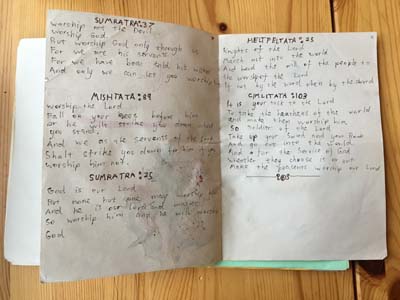 SUMRATRA:37
worship not the Devil
worship God
But worship God only through us
For we are his servants
For we have been told his
And only we can let you worship
MISHTATA:89
Worship the Lord
Fall on your knees before him
or he will strike you down what
you stand,
And we as the servents of the Lord
Shall strike you down for him if you
worship him not.
SUMRATRA:25
God is our Lord
But none but gone may worship him
And he is our Lord and
So worship him and he will
God
HELTPELTATA:25
Knights of the Lord
March out into the world
And bend the will of the people to
the word of the Lord
If not by the word then by the sword
GIMLITATA:103
It is your task to the Lord
To take the heathens of the world
and make them worship him
So Soldier of the Lord
Take up your Sword and your Bow
And go out into the world
And for the Savior of God
Whether they choose it or not
Make the worship our Lord